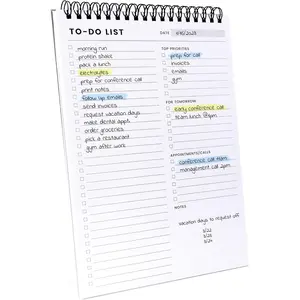 TO-DO LIST
morning run
protein shake
pack a lunch
electrolytes
prep for conference call
print notes
follow up emails
send invoices
request vacation days
make dental appt.
order groceries
pick a restaurant
gym after work
DATE
TOP PRIORITIES
prep for call
invoices
emails
gym
FOR TOMORROW
early conference call
team lunch @1pm
APPOINTMENTS/CALLS
conference call 11am
management call 2pm
NOTES
vacation days to request off:
5/22
5/23
5/24